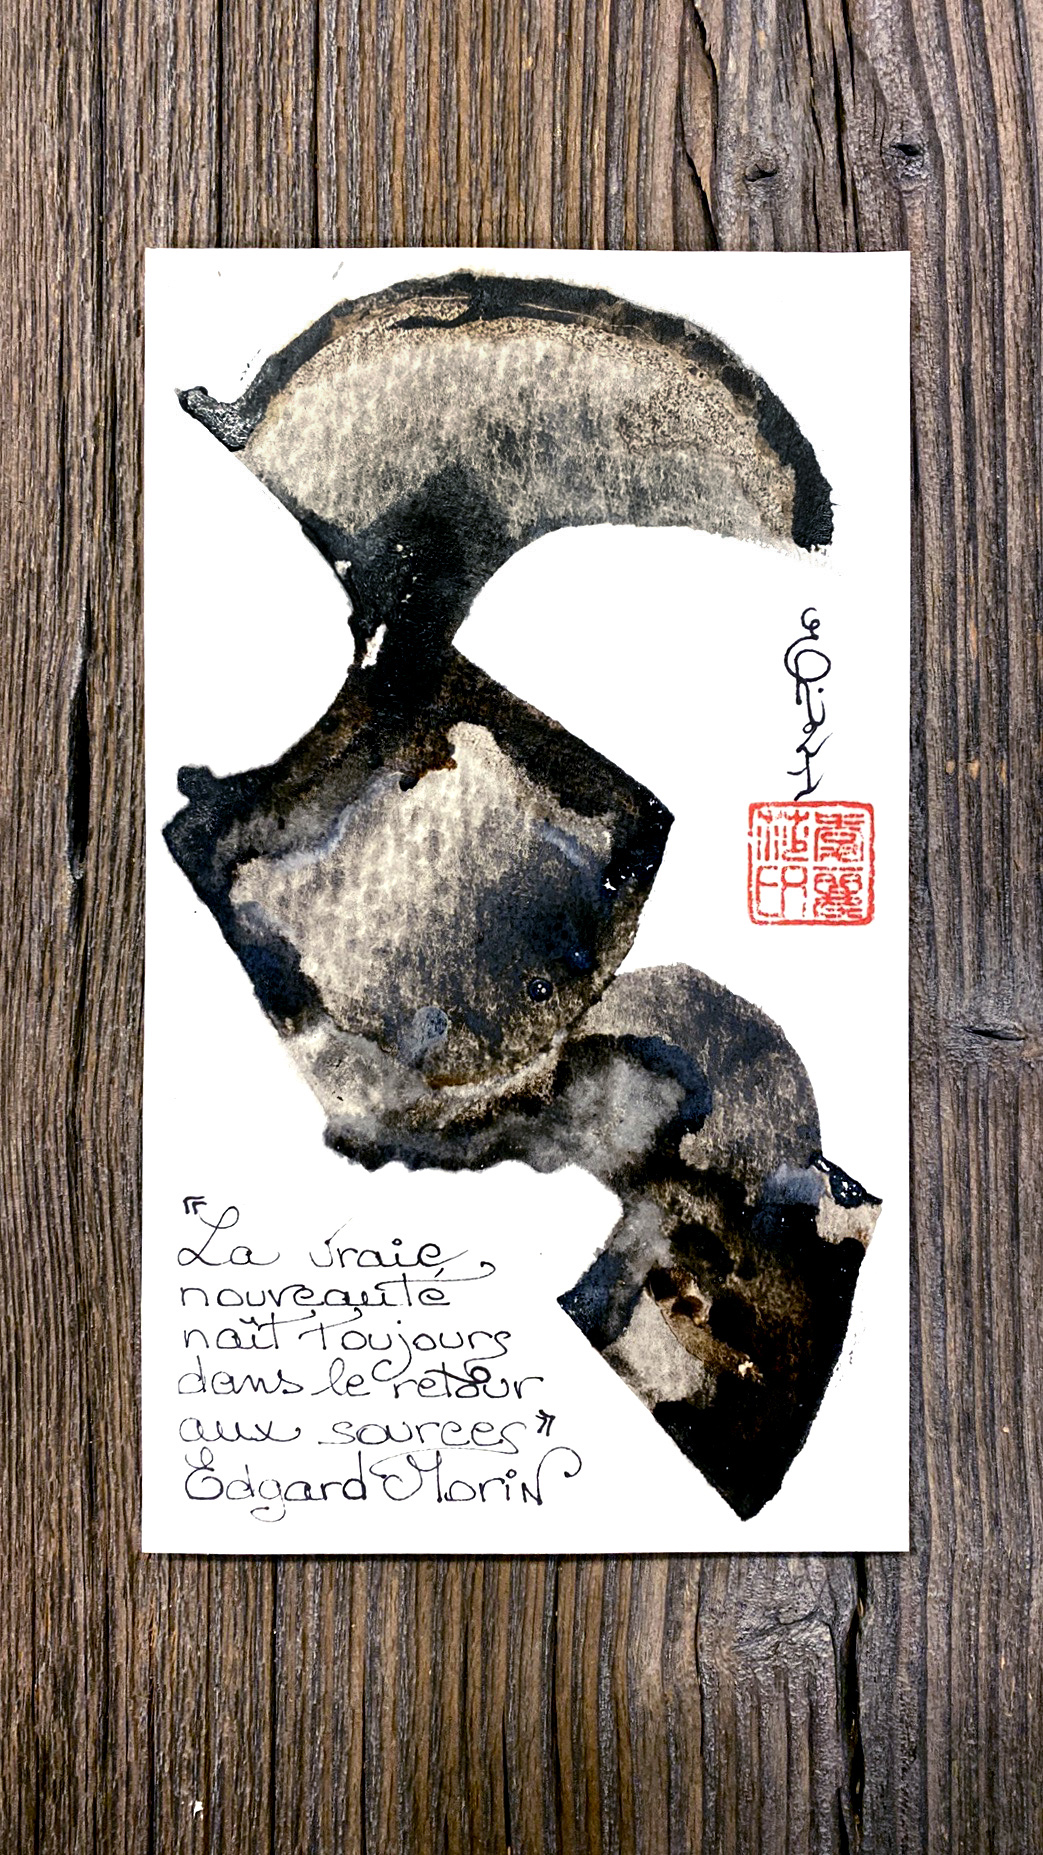 "La vraie
nouveauté
naît toujours
dans le retour
aux sources"
Edgard Morin